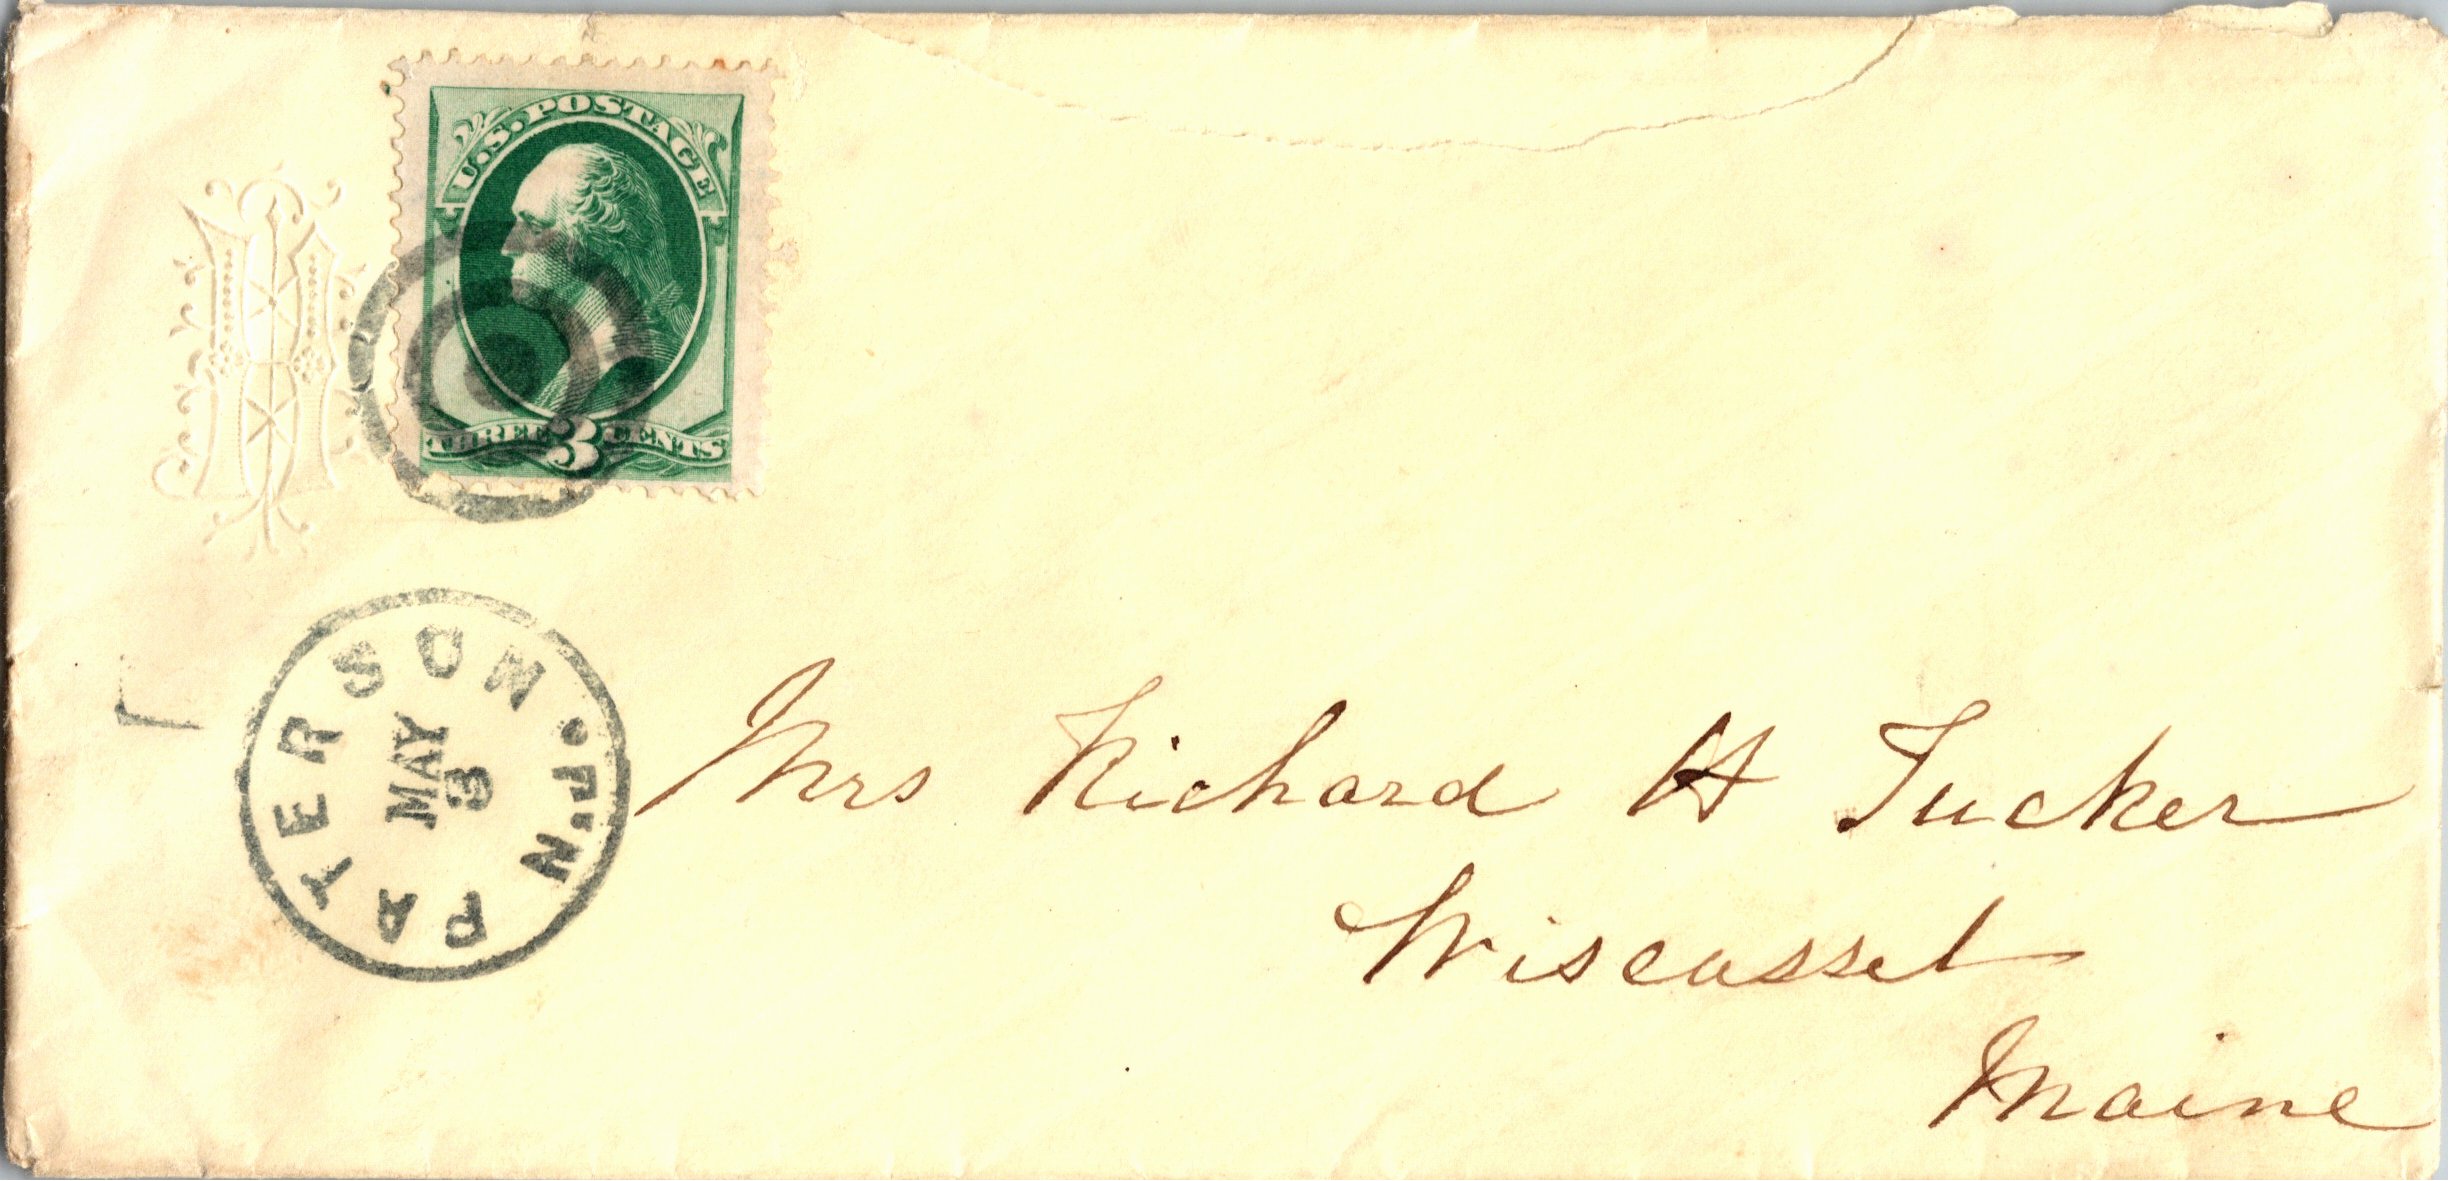 U.S. POSTAGE
THREE 3 CENTS
PATERSON. N.J.
MAY
3
Mrs Richard H Tucker
Wiscasset
Maine